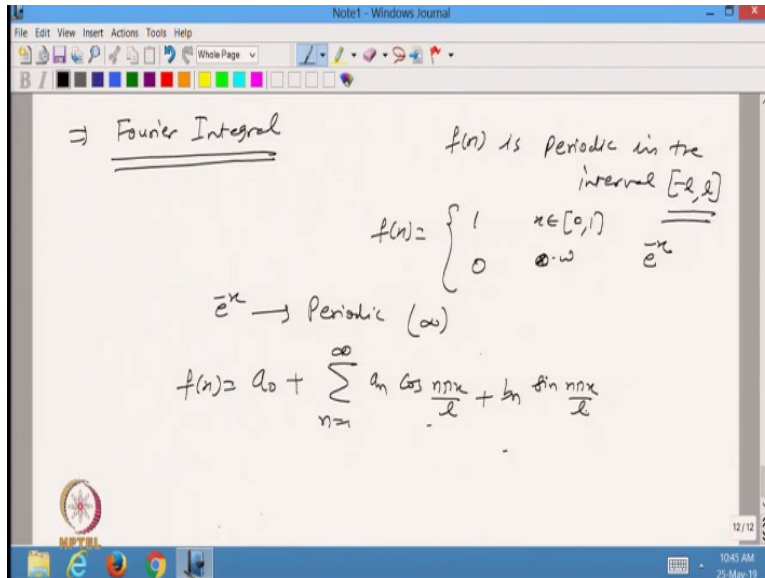 Note1 - Windows Journal
File Edit View Insert Actions Tools Help
Whole Page
B I
⇒ Fourier Integral
f(x) is Periodic in the
interval [-l, l]
f(x) = { 1 x∈[0,1]
0 o.w
e^-x
e^-x → Periodic (∞)
f(x) = a0 + ∑ n=1 ∞ an cos nπx/l + bn sin nπx/l
NPTEL
12/12
10:45 AM
25-May-19